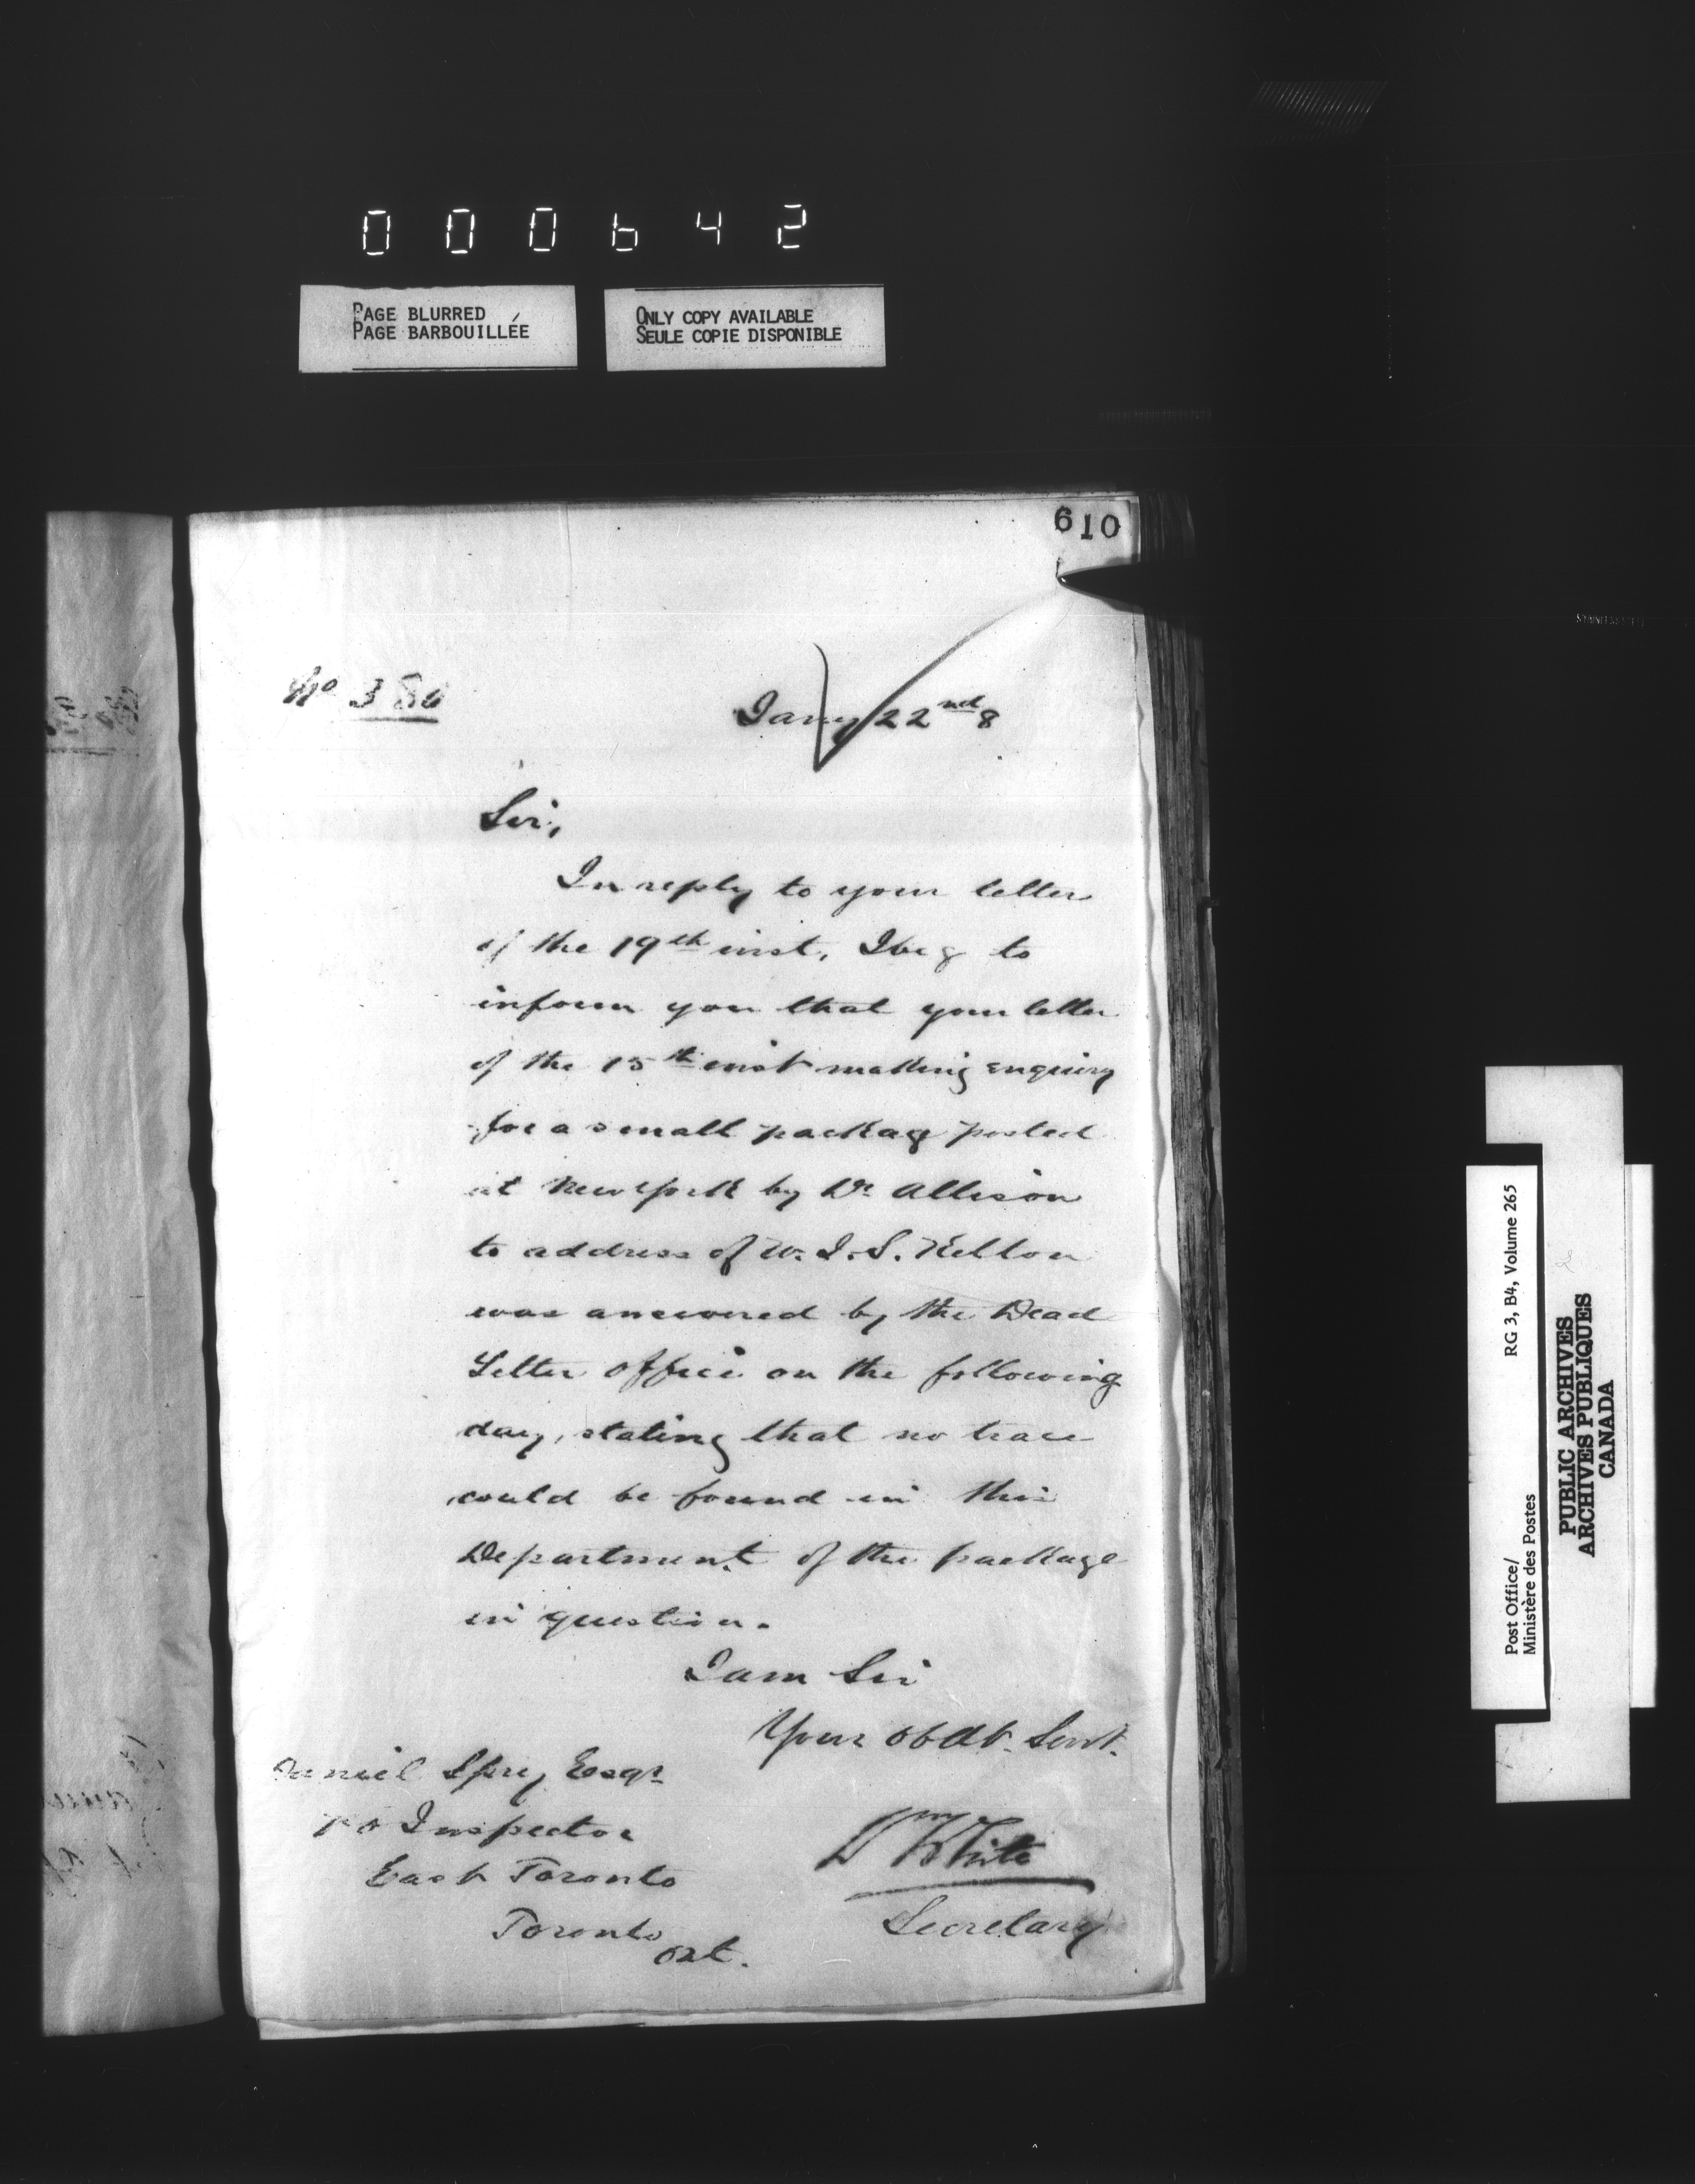 000642
PAGE BLURRED
PAGE BARBOUILLÉE
ONLY COPY AVAILABLE
SEULE COPIE DISPONIBLE
610
No 386
Jany 22nd 8
Sir,
In reply to your letter
of the 19th inst, I beg to
inform you that your letter
of the 15th inst making enquiry
for a small package posted
at New York by Dr Allison
to address of W. J. S. Kelton
was answered by the Dead
Letter Office on the following
day, stating that no trace
could be found in this
Department of the package
in question.
I am Sir
Your obdt. Servt.
Daniel Spry Esqr
P O Inspector
East Toronto
Toronto
Ont.
Wm White
Secretary
Post Office/
Ministère des Postes
RG 3, B4, Volume 265
PUBLIC ARCHIVES
ARCHIVES PUBLIQUES
CANADA